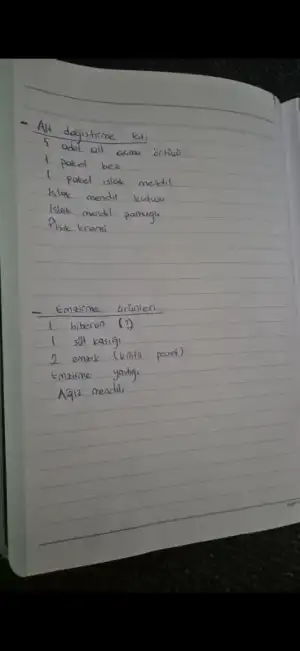 - Alt değiştirme kiti
5 adet alt açma örtüsü
1 paket bez
1 paket ıslak mendil
Islak mendil kutusu
Islak mendil pamuğu
Pişik kremi
- Emzirme ürünleri
1 biberon (?)
1 süt kaşığı
2 emzik (kilitli poşet)
Emzirme yastığı
Ağız mendili